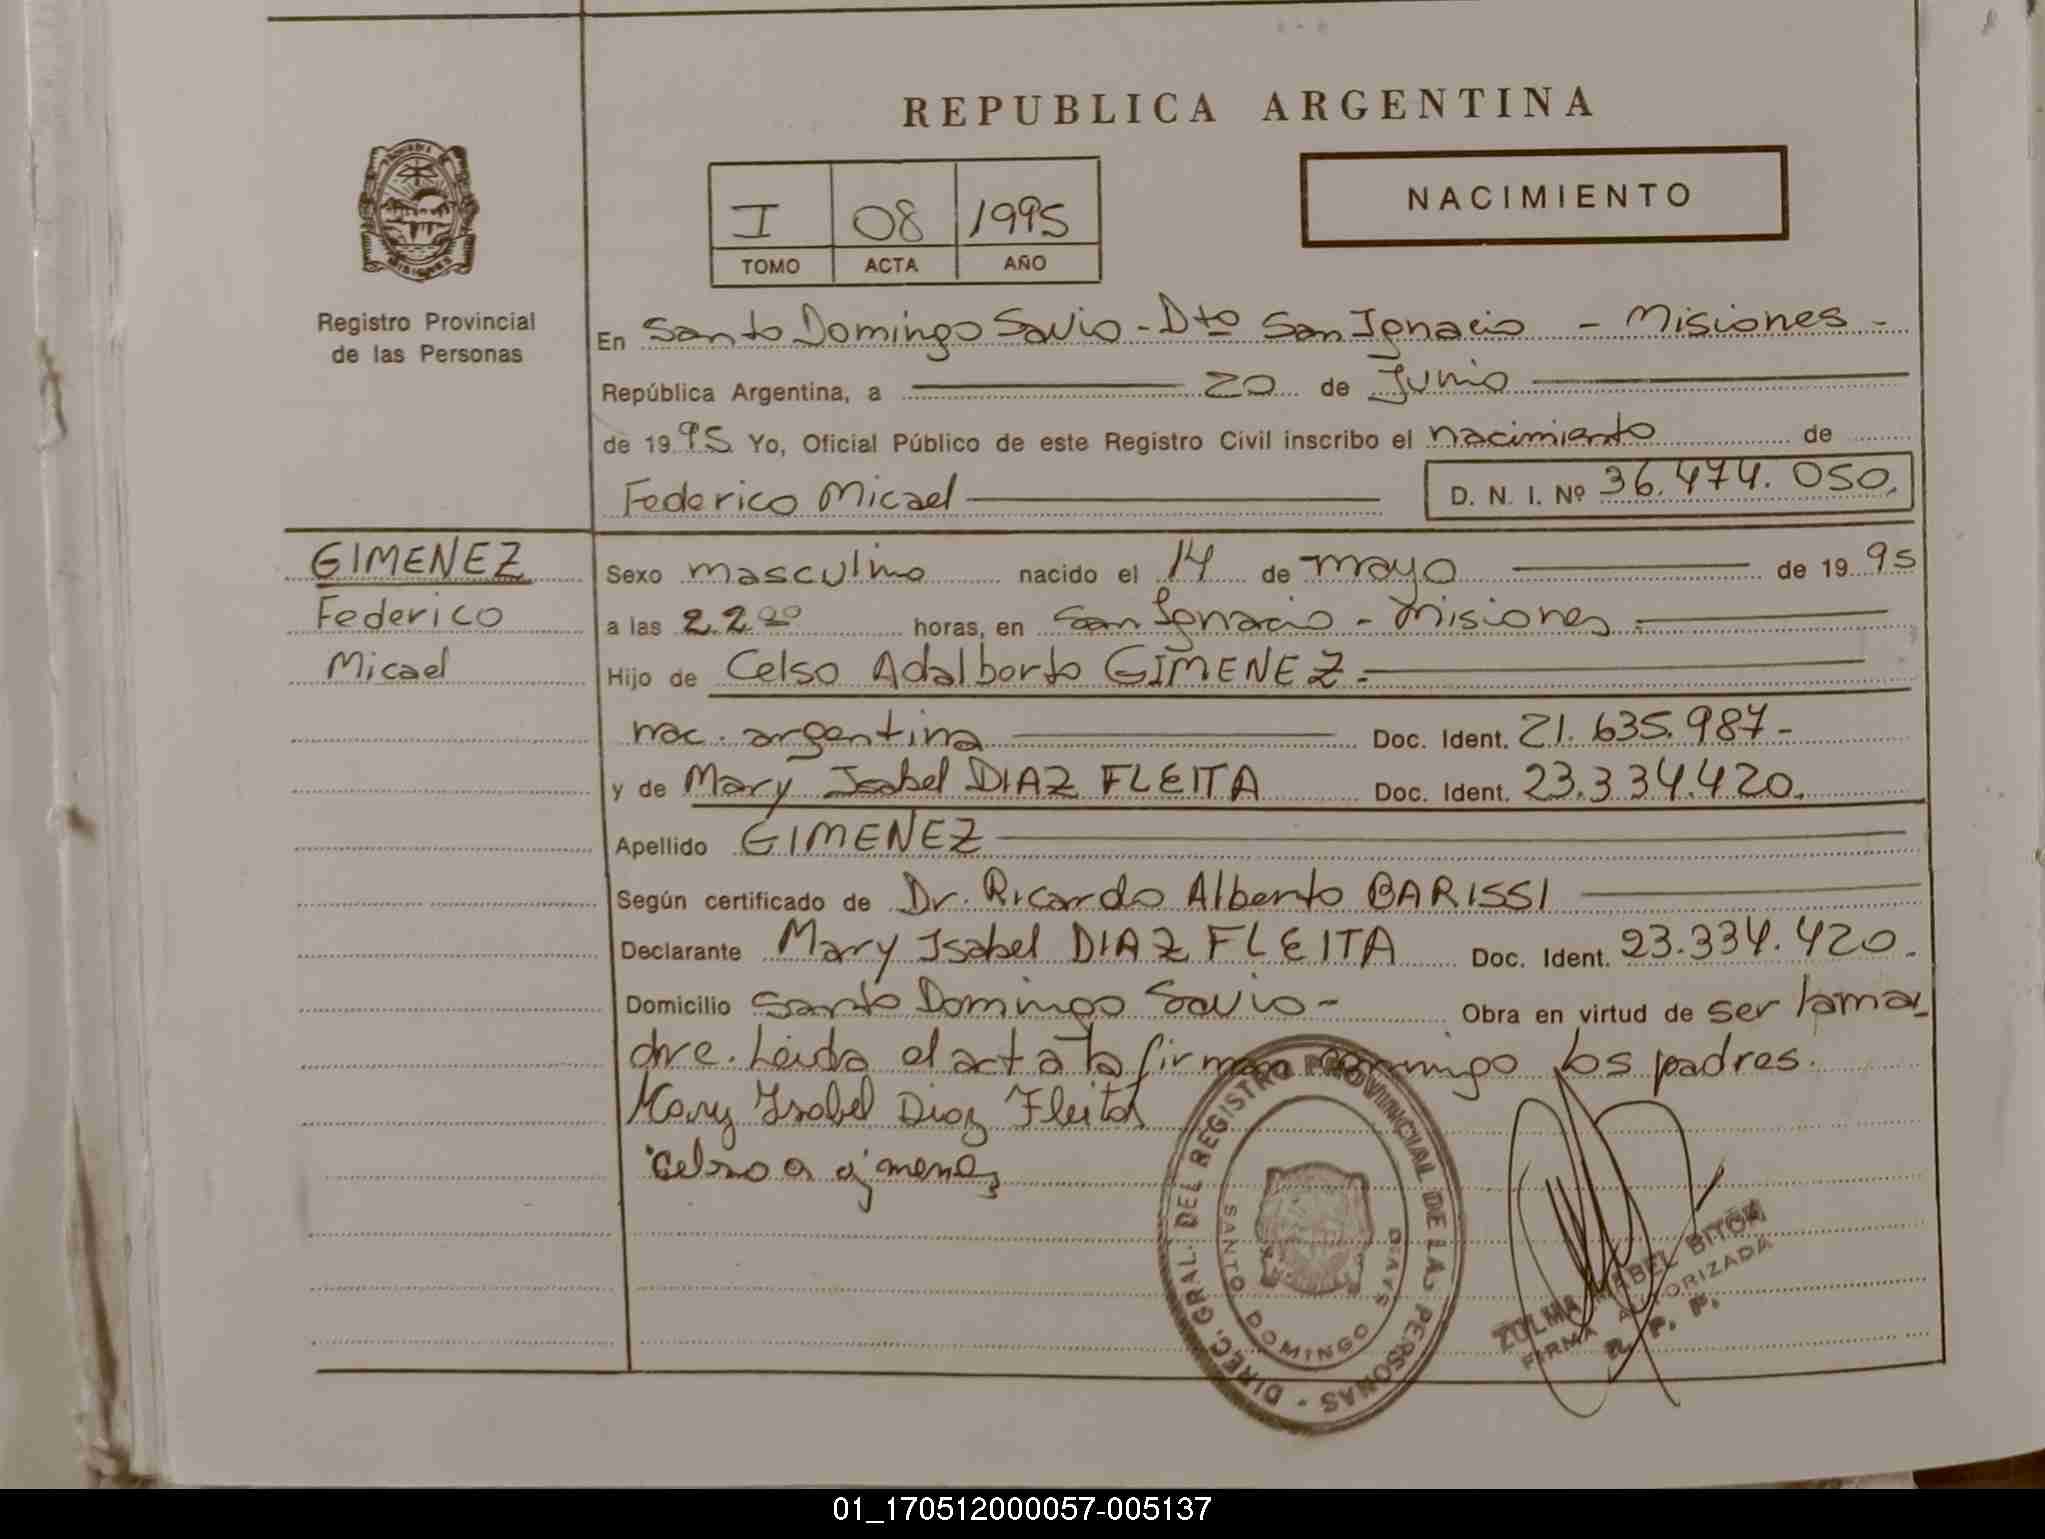 REPUBLICA ARGENTINA
I 08 1995
TOMO ACTA AÑO
NACIMIENTO
MISIONES
Registro Provincial
de las Personas
En Santo Domingo Savio - Dto San Ignacio - Misiones -
República Argentina, a 20 de Junio
de 1995 Yo, Oficial Público de este Registro Civil inscribo el nacimiento de
Federico Micael D. N. I. Nº 36.474.050.
GIMENEZ
Federico
Micael
Sexo masculino nacido el 14 de mayo de 1995
a las 22 00 horas, en San Ignacio - Misiones -
Hijo de Celso Adalberto GIMENEZ -
nac. argentina Doc. Ident. 21.635.987 -
y de Mary Isabel DIAZ FLEITA Doc. Ident. 23.334.420.
Apellido GIMENEZ
Según certificado de Dr. Ricardo Alberto BARISSI
Declarante Mary Isabel DIAZ FLEITA Doc. Ident. 23.334.420.
Domicilio Santo Domingo Savio - Obra en virtud de ser lama-
dre. Leida el acta la firman conmigo los padres.
Mary Isabel Diaz Fleita
Celso a gimenez
DIREC. GRAL. DEL REGISTRO PROVINCIAL DE LAS PERSONAS -
SANTO DOMINGO
ZULMA BITON
FIRMA AUTORIZADA
R. P. P.
01_170512000057-005137